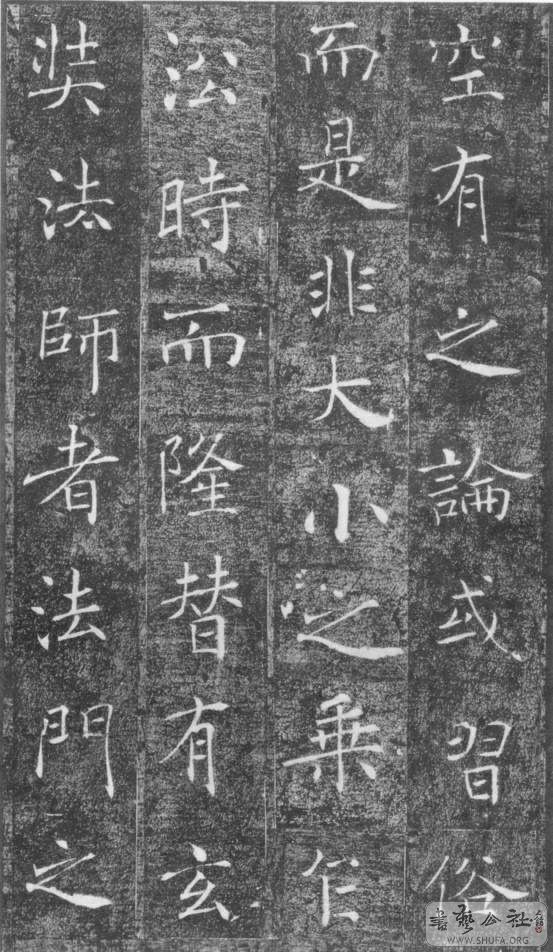 空有之論或習俗
而是非大小之乘乍
沿時而隆替有玄
奘法師者法門之
書藝公社
WWW.SHUFA.ORG